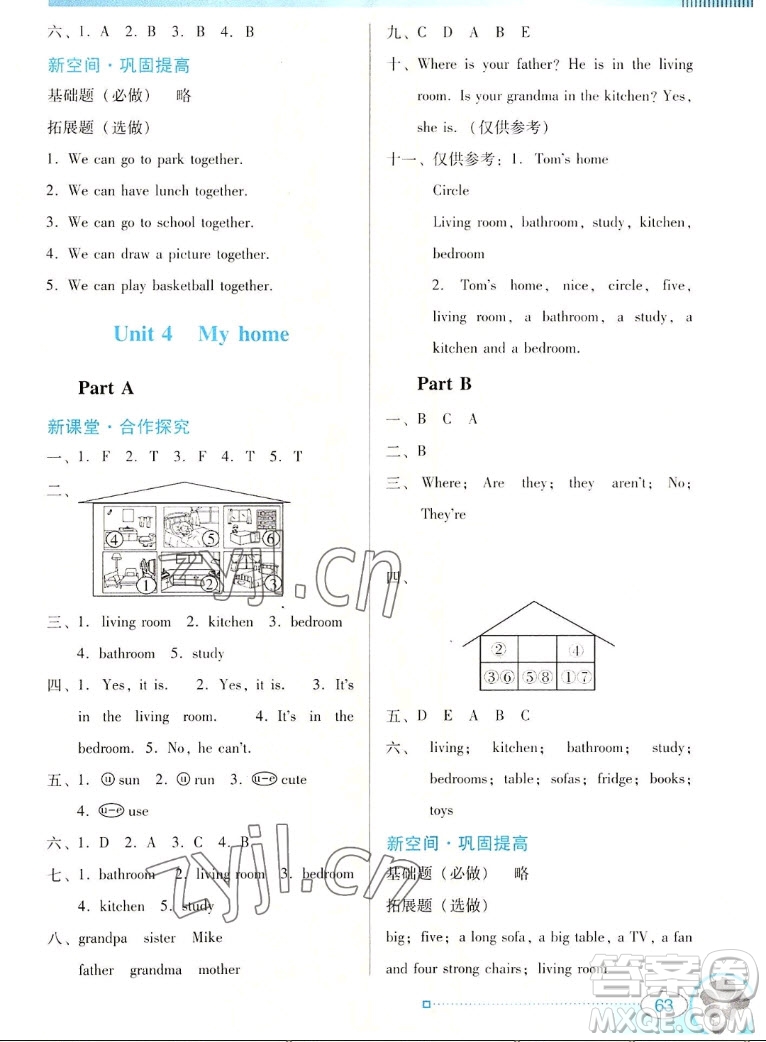 六、1. A 2. B 3. B 4. B
新空间·巩固提高
基础题（必做） 略
拓展题（选做）
1. We can go to park together.
2. We can have lunch together.
3. We can go to school together.
4. We can draw a picture together.
5. We can play basketball together.
Unit 4 My home
Part A
新课堂·合作探究
一、1. F 2. T 3. F 4. T 5. T
二、
④ ⑤ ⑥
① ② ③
三、1. living room 2. kitchen 3. bedroom
4. bathroom 5. study
四、1. Yes, it is. 2. Yes, it is. 3. It's
in the living room. 4. It's in the
bedroom. 5. No, he can't.
五、1. ⓤ sun 2. ⓤ run 3. u-e cute
4. u-e use
六、1. D 2. A 3. C 4. B
七、1. bathroom 2. living room 3. bedroom
4. kitchen 5. study
八、grandpa sister Mike
father grandma mother
九、C D A B E
十、Where is your father? He is in the living
room. Is your grandma in the kitchen? Yes,
she is.（仅供参考）
十一、仅供参考：1. Tom's home
Circle
Living room, bathroom, study, kitchen,
bedroom
2. Tom's home, nice, circle, five,
living room, a bathroom, a study, a
kitchen and a bedroom.
Part B
一、B C A
二、B
三、Where; Are they; they aren't; No;
They're
四、
② ④
③⑥ ⑤⑧ ①⑦
五、D E A B C
六、living; kitchen; bathroom; study;
bedrooms; table; sofas; fridge; books;
toys
新空间·巩固提高
基础题（必做） 略
拓展题（选做）
big; five; a long sofa, a big table, a TV, a fan
and four strong chairs; living room
63
zyjl.cn
zyjl.cn
答案圈
MXQE.COM